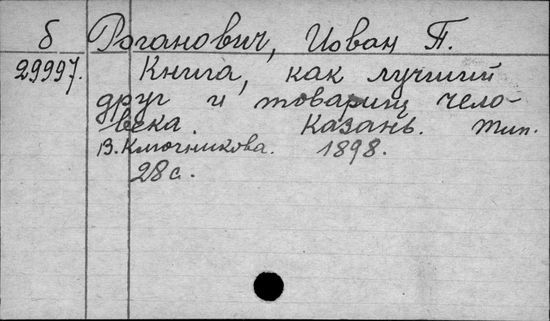 б Роганович, Иован П.
29997. Книга, как лучший
друг и товарищ чело-
века. Казань. Тип.
В. Ключникова. 1898.
28 с.